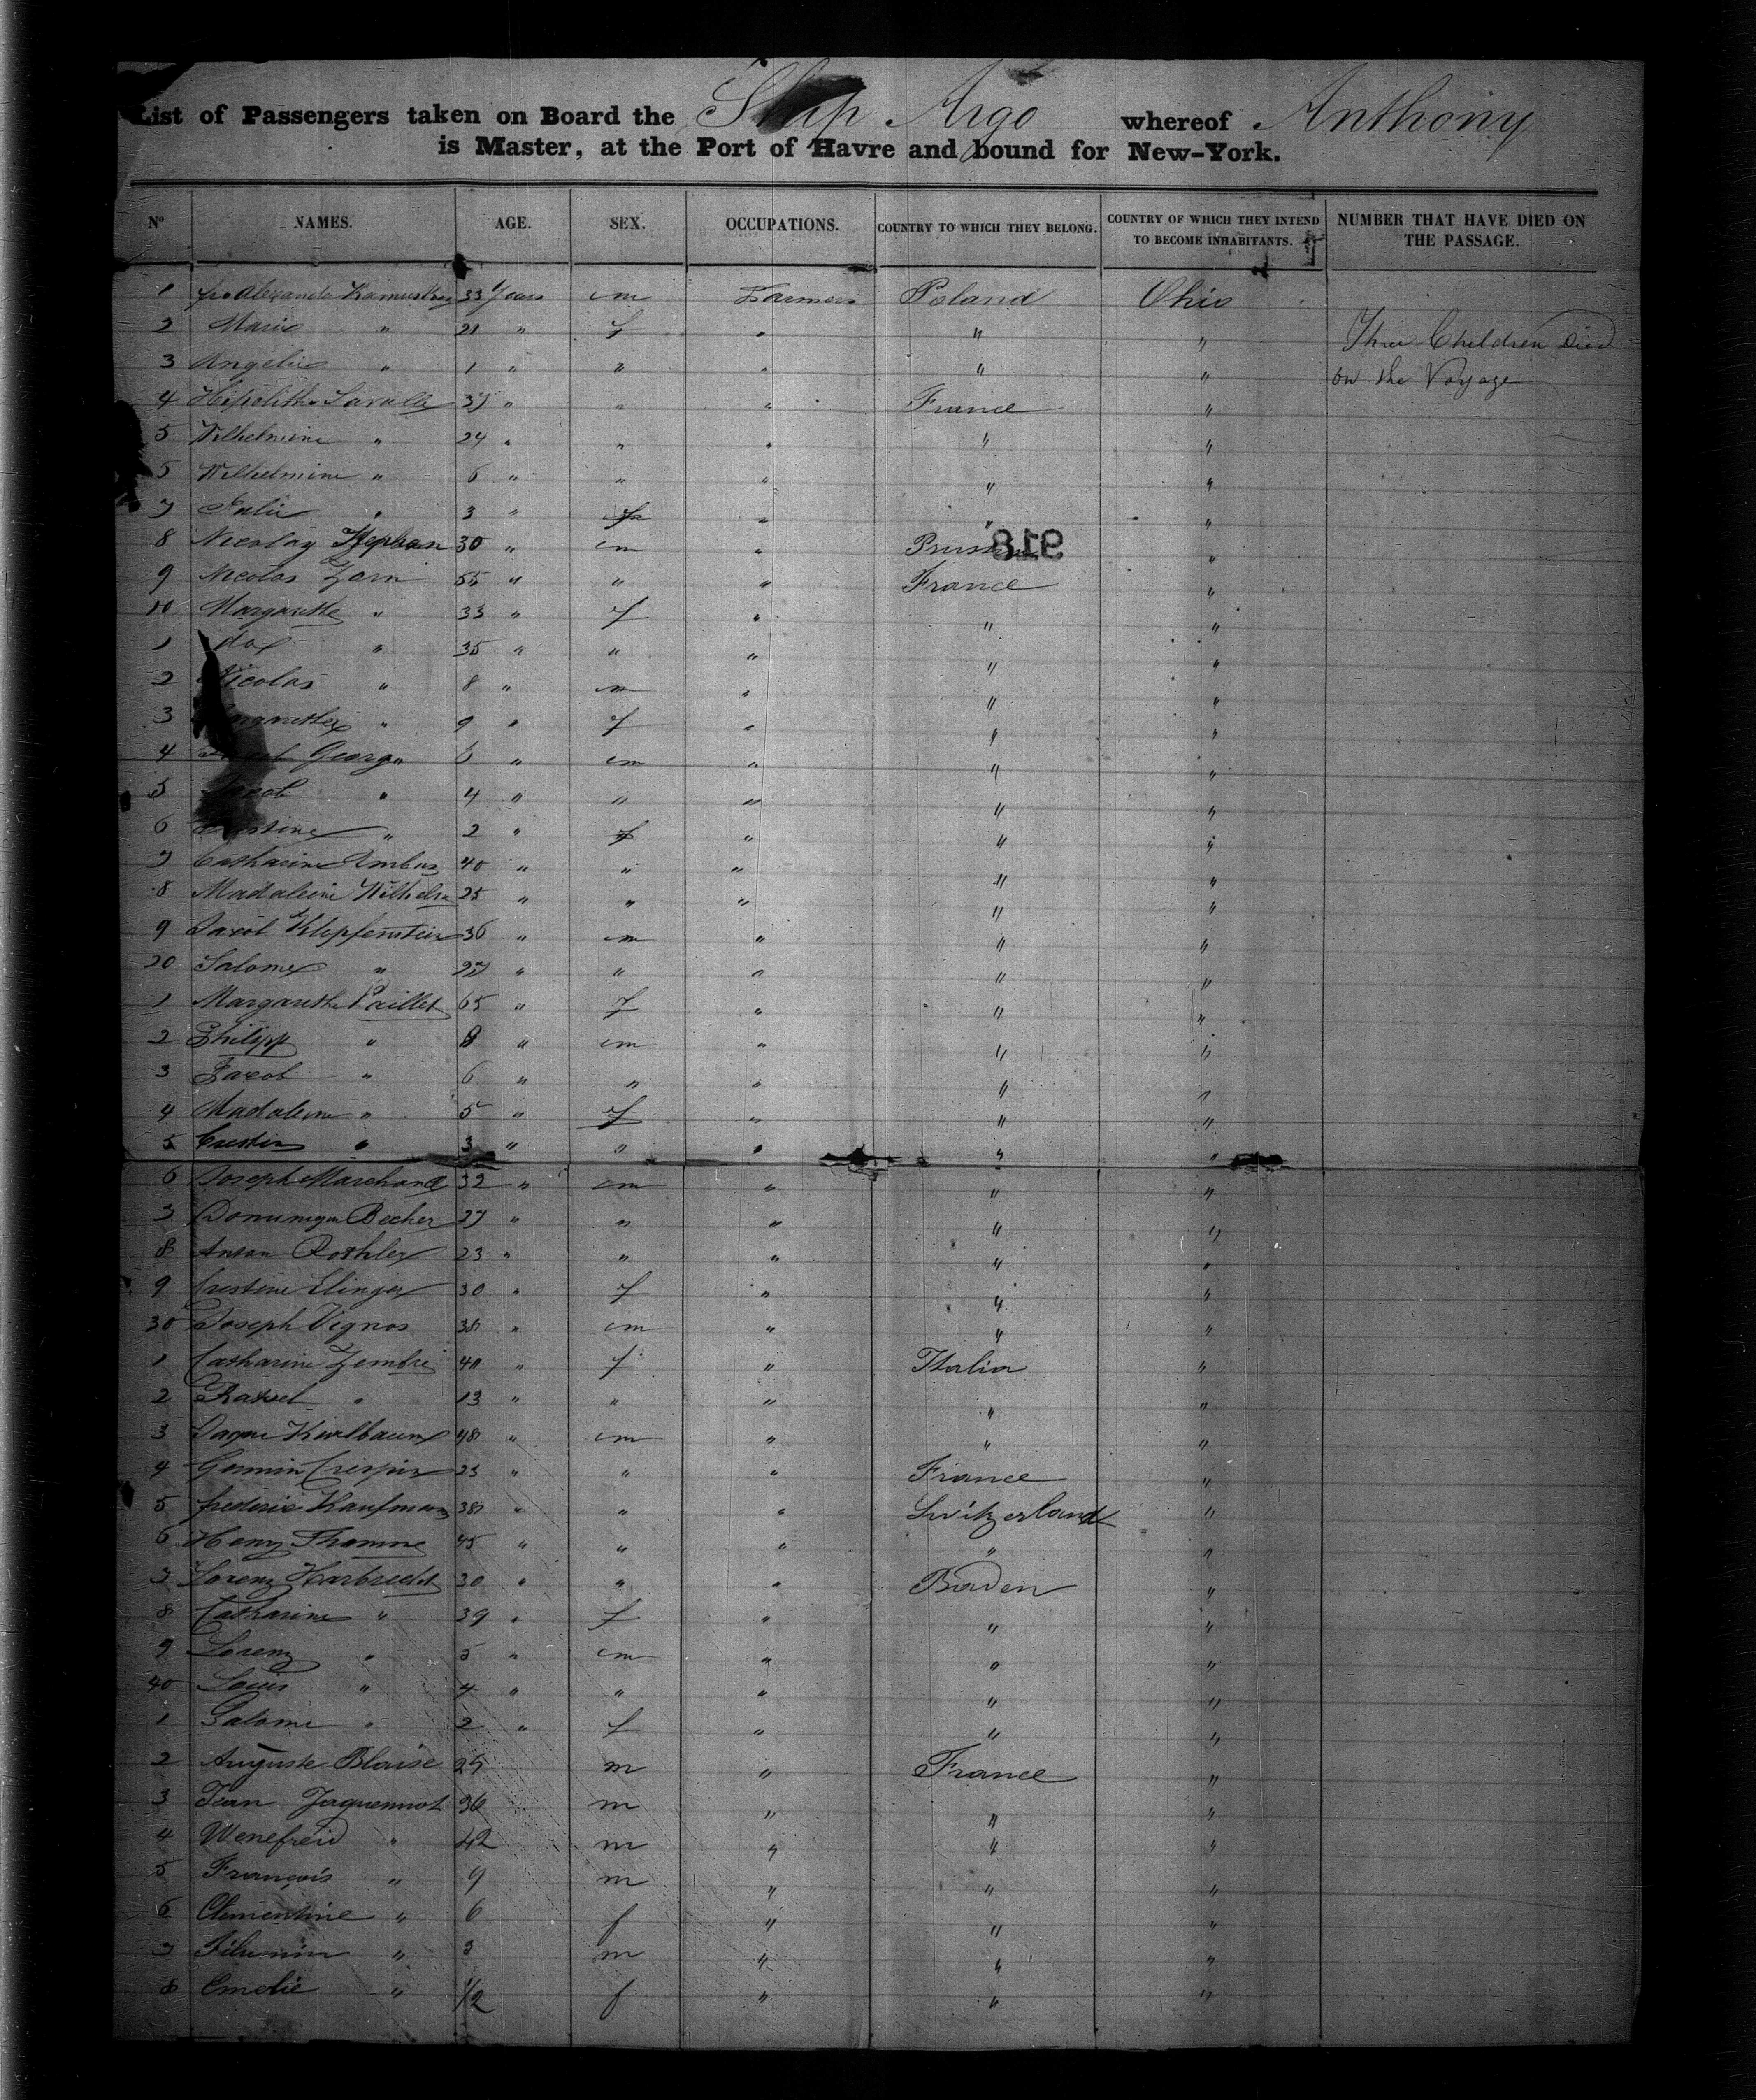 List of Passengers taken on Board the Ship Argo whereof Anthony
is Master, at the Port of Havre and bound for New-York.
Nº NAMES. AGE. SEX. OCCUPATIONS. COUNTRY TO WHICH THEY BELONG. COUNTRY OF WHICH THEY INTEND TO BECOME INHABITANTS. NUMBER THAT HAVE DIED ON THE PASSAGE.
1 33 Years m Farmers Poland Ohio
2 Marie " 21 " f " " " Three Children Died
3 Angelie " 1 " " " " " on the Voyage
4 Hipolithe Lavalle 37 " " " France "
5 Wilhelmine " 24 " " " " "
5 Wilhelmine " 6 " " " " "
7 Julie " 3 " f " " "
8 Nicolay 30 " m " Prussia "
918
9 Nicolas Zorn 55 " " " France "
10 Margarethe " 33 " f " " "
1 " 35 " " " " "
2 Nicolas " 8 " m " " "
3 Margarethe " 9 " f " " "
4 George " 6 " m " " "
5 Jacob " 4 " " " " "
6 " 2 " f " " "
7 Catharine 40 " " " " "
8 Madaleine Wilhelm 25 " " " " "
9 Jacob Klopfenstein 36 " m " " "
20 Salome " 27 " " " " "
1 Margareth Paillet 65 " f " " "
2 Philipp " 8 " m " " "
3 Jacob " 6 " " " " "
4 Madaleine " 5 " f " " "
5 " 3 " " " " "
6 Joseph Marchand 32 " m " " "
7 Becher 27 " " " " "
8 Anton Rothler 23 " " " " "
9 Crestine Elinger 30 " f " " "
30 Joseph Vignos 38 " m " " "
1 Catharine 40 " f " Italia "
2 " 13 " " " " "
3 48 " m " " "
4 Germin Crespin 23 " " " France "
5 frederic Kaufmann 38 " " " Switzerland "
6 Henry Thomme 45 " " " " "
7 Lorenz Harbrecht 30 " " " Baden "
8 Catharine " 39 " f " " "
9 Lorenz " 5 " m " " "
40 Louis " 4 " " " " "
1 Salome " 2 " f " " "
2 Auguste Blaise 25 m " France "
3 Jean Jaquennot 36 m " " "
4 Wenefreid " 42 m " " "
5 François " 9 m " " "
6 Clementine " 6 f " " "
7 " 3 m " " "
8 Emelie " 1/2 f " " "